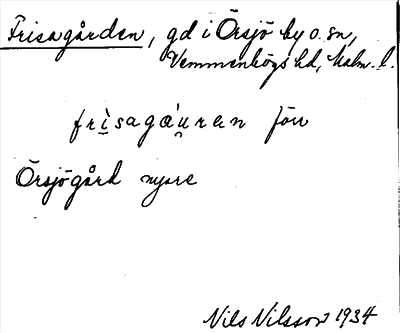 Frisagården, gd i Örsjö by o. sn,
Vemmenhögs hd, Malm. l.
frìsagǽu̯ren förr
Örsjögård nyare
Nils Nilsson 1934